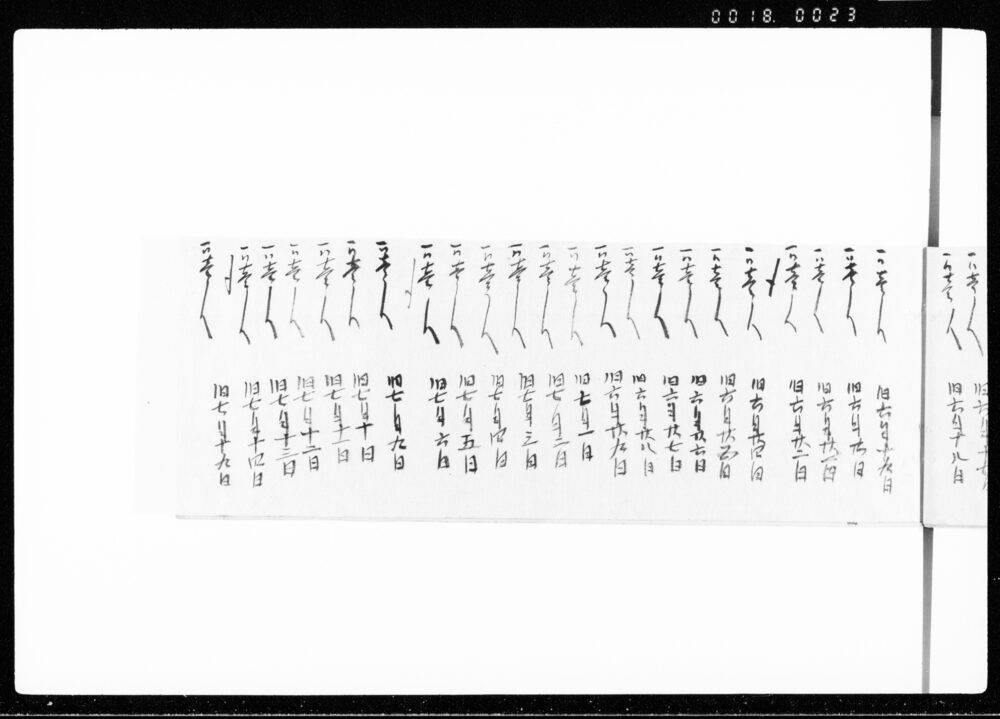 0018. 0023
一 壱人 旧六月十七
一 壱人 旧六月十八日
一 壱人 旧六月十九日
一 壱人 旧六月廿日
一 壱人 旧六月廿一日
一 壱人 旧六月廿二日
一 壱人 旧六月廿四日
一 壱人 旧六月廿五日
一 壱人 旧六月廿六日
一 壱人 旧六月廿七日
一 壱人 旧六月廿八日
一 壱人 旧六月廿九日
一 壱人 旧七月一日
一 壱人 旧七月二日
一 壱人 旧七月三日
一 壱人 旧七月四日
一 壱人 旧七月五日
一 壱人 旧七月六日
一 壱人 旧七月九日
一 壱人 旧七月十日
一 壱人 旧七月十一日
一 壱人 旧七月十二日
一 壱人 旧七月十三日
一 壱人 旧七月十四日
一 壱人 旧七月十九日